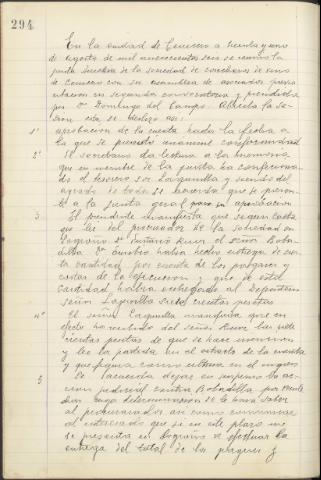 294
En la ciudad de Cenicero a treinta y uno
de agosto de mil novecientos seis se reunio la
junta directiva de la sociedad de cosecheros de vino
de Cenicero con su asamblea de asociados previa
citacion en segunda convocatoria y presidida
por Dn Domingo del Campo. Abierta la se-
sion esta se declaro asi:
1º aprobacion de la cuenta hasta la fecha a
la que se presento unanime conformidad
2º El secretario da lectura a la memoria
que en nombre de la junta ha confecciona-
do el tesorero Sor Lagunilla y siendo del
agrado de todos se acuerda que se presen-
te a la junta general para su aprobacion
3 El presidente manifiesta que segun carta
que lee del procurador de la sociedad en
Logroño Dn el señor Boba-
dilla Dn Eusebio habia hecho entrega de
la cantidad por cuenta de los pagares y
costas de la ejecucion y que de esta
cantidad habia entregado al Depositario
señor Lagunilla setecientas pesetas
4º El señor Lagunilla manifiesta que en
efecto ha recibido del señor las sete
cientas pesetas de que se hace mencion
y leo la partida en el extracto de la cuenta
y que figura como ultima en el ingreso
5 Se acuerda dejar en suspenso la ac-
cion judicial contra Bobadilla por veinte
dias cuya determinacion se le hara saber
al procurador asi como comunicarse
al interesado que si en este plazo no
se presenta en Logroño a efectuar la
entrega del total de los pagares y